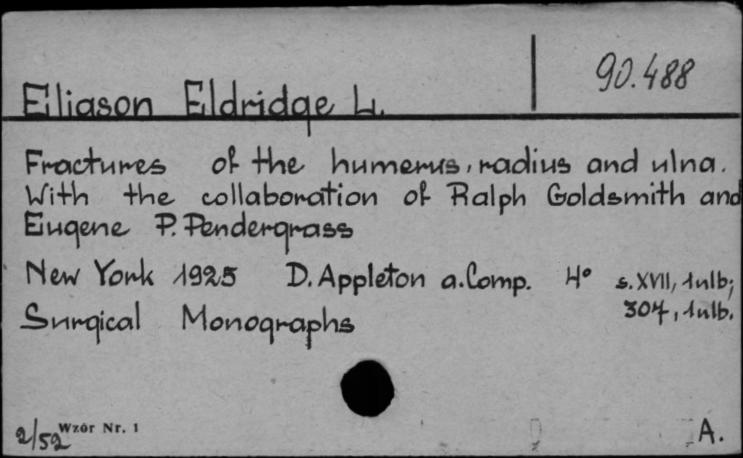 90.488
Eliason Eldridge L.
Fractures of the humerus, radius and ulna.
With the collaboration of Ralph Goldsmith and
Eugene P. Pendergrass
New York 1925 D. Appleton a. Comp. 4° s. XVII, 1nlb;
304, 1nlb.
Surgical Monographs
2/52 Wzór Nr. 1
A.